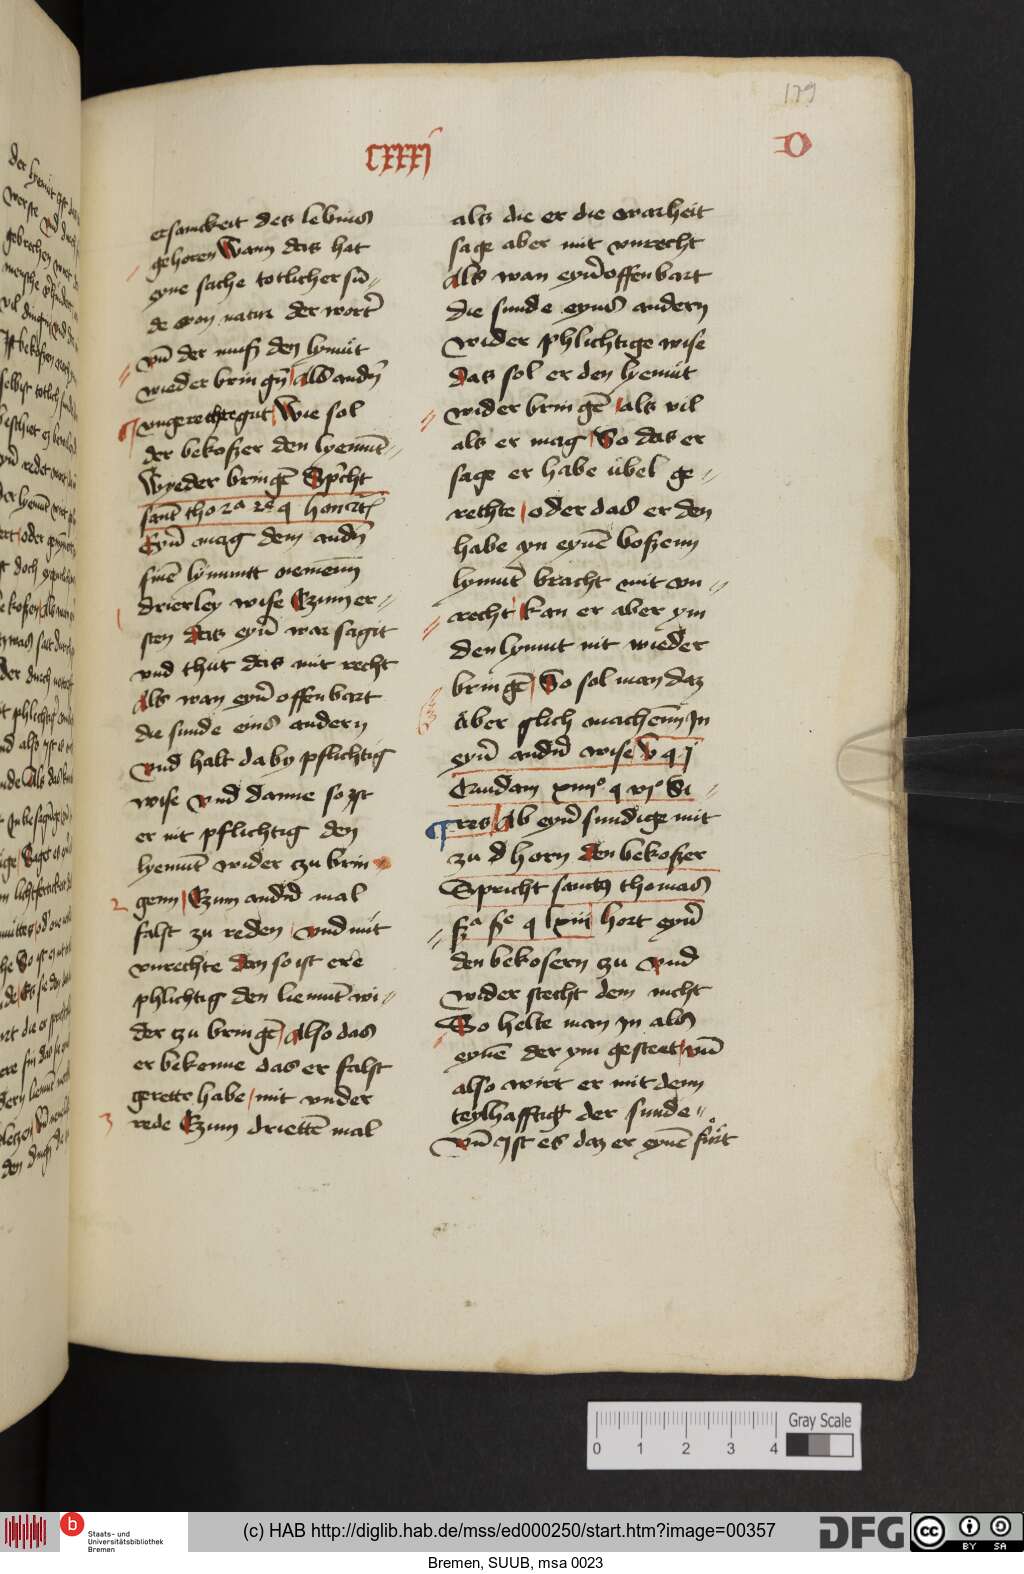 179
CXXXI
O
ersamkeit des lebens
gehoren Wann das hat
eyne sache totlicher sū-
de von natur der wort
vn̄ der muß den lymūt
wieder bringn̄ Als andn̄
vngerechtegut Wie sol
der bekoszer den lyemūt-
Wyeder bringē Spr̄cht
sant tho 2a 2e q
Eyn̄ mag dem andn̄
sinē lymmtt nemenn
drierley wise Czum er-
sten das eyn̄ war sagit
vnd thut das mit recht
Als wan eyn̄ offenbart
die sunde eins andern
vnd halt daby pflichtig
wise vnd danne so jst
er nit pflichtig den
lyemūt wider zu brin
2 genn Czum andn̄ mal
falst zu reden vnd mit
vnrechte dan so ist ere
phlichtig den liemūt wi-
der zu bringē Also das
er bekenne das er falst
gerette habe mit vnder
3 rede Czum driettē mal
als die er die warheit
sage aber mit vnrecht
Als wan eyn̄ offenbart
die sunde eyns andern
wider phlichtige wise
das sol er den lyemūt
wider bringē als vil
als er mag So das er
sage er habe ūbel ge-
rethte oder das er den
habe yn eynē boszenn
lymūt bracht mit vn-
recht kan er aber ym
den lymut nit wieder
bringē So sol man daz
Aber glich machenn Jn
eyn̄ andn̄ wise V q j
Causam q Si-
res Ab eyn̄ sundige mit
zu d horn den bekoszer
Spricht sanctus thomas
q lxiii hort eyn̄
den bekosern zu vnd
wider stecht dem nicht
So helte man jn als
eynē der ym gesteet vn̄
also wirt er mit denn
teylhafftig der sunde-
vn̄ jst es daz er eynē fūrt
0 1 2 3 4
Gray Scale
Staats- und
Universitätsbibliothek
Bremen
(c) HAB http://diglib.hab.de/mss/ed000250/start.htm?image=00357
DFG
cc BY SA
Bremen, SUUB, msa 0023